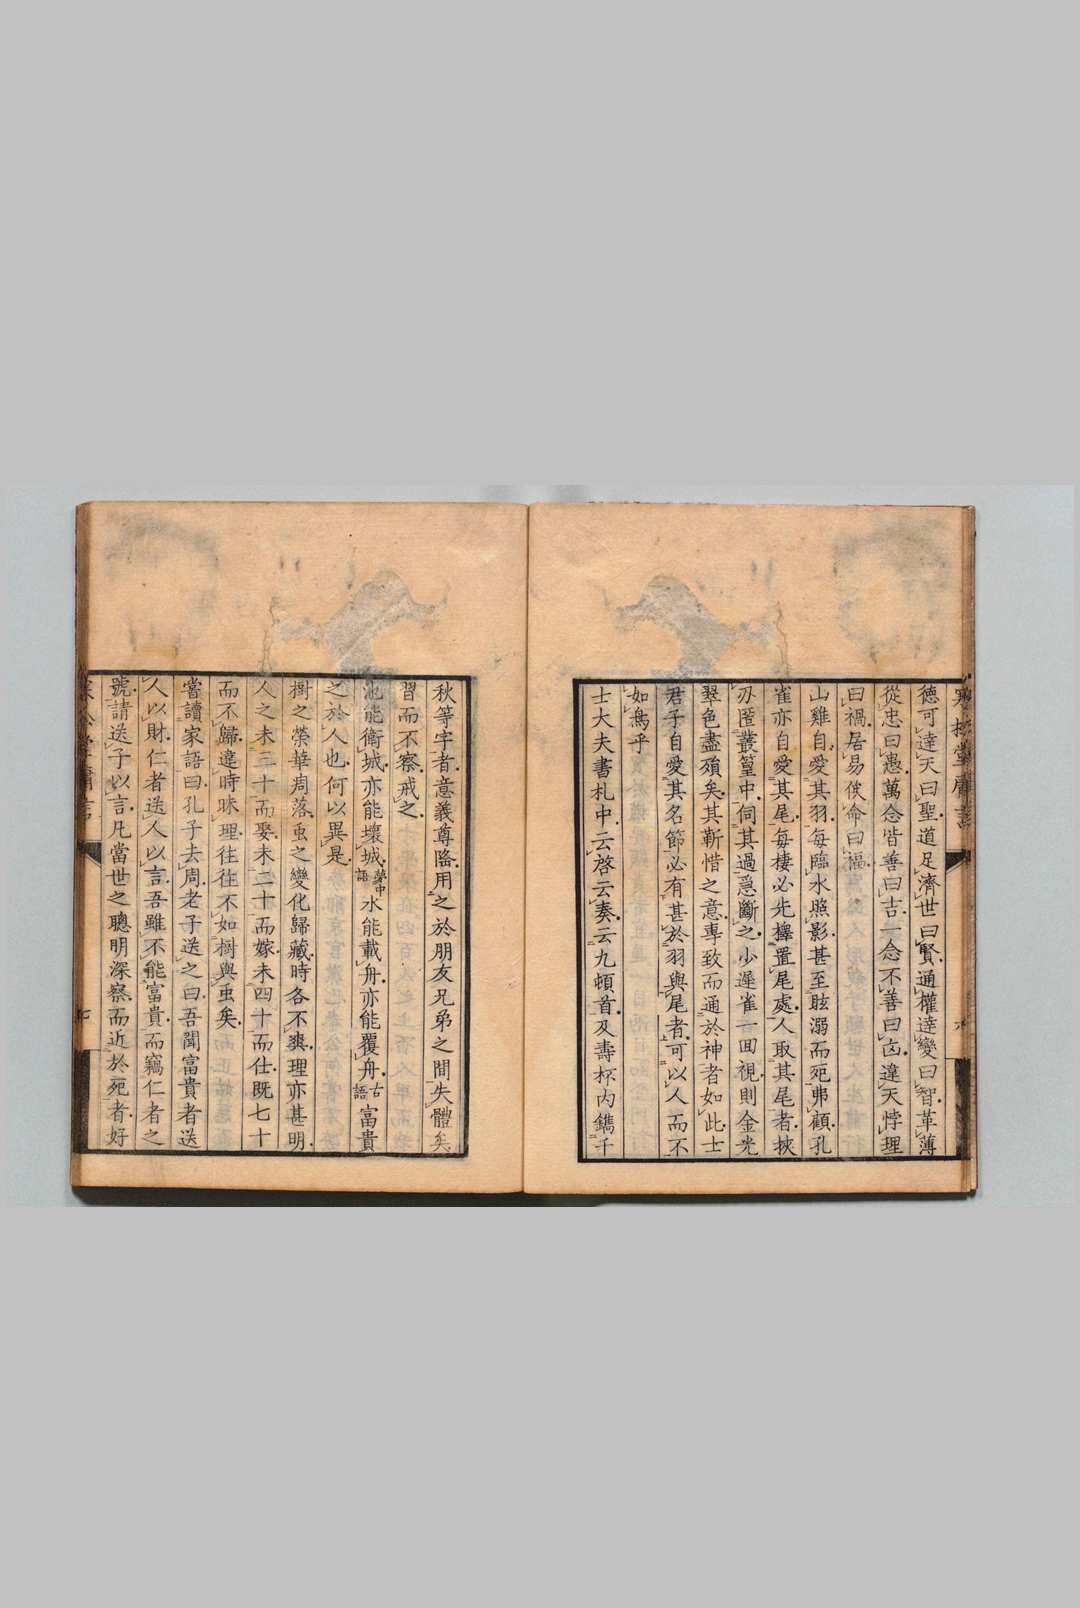 德可達天曰聖道足濟世曰賢通權達變曰智革薄
從忠曰愚萬念皆善曰吉一念不善曰凶違天悖理
曰禍居易俟命曰福
山雞自愛其羽每臨水照影甚至眩溺而死弗顧孔
雀亦自愛其尾每棲必先擇置尾處人取其尾者挾
刃匿叢篁中伺其過急斷之少遲雀一囬視則金光
翠色盡殞矣其靳惜之意專致而通於神者如此士
君子自愛其名節必有甚於羽與尾者可以人而不
如鳥乎
士大夫書札中云啓云奏云九頓首及壽杯內鐫千
秋等字者意義尊隆用之於朋友兄弟之間失體矣
習而不察戒之
池能衛城亦能壞城夢中語水能載舟亦能覆舟古語富貴
之於人也何以異是
樹之榮華凋落虫之變化歸藏時各不爽理亦甚明
人之未三十而娶未二十而嫁未四十而仕既七十
而不歸違時昧理往往不如樹與虫矣
嘗讀家語曰孔子去周老子送之曰吾聞富貴者送
人以財仁者送人以言吾雖不能富貴而竊仁者之
號請送子以言凡當世之聰明深察而近於死者好